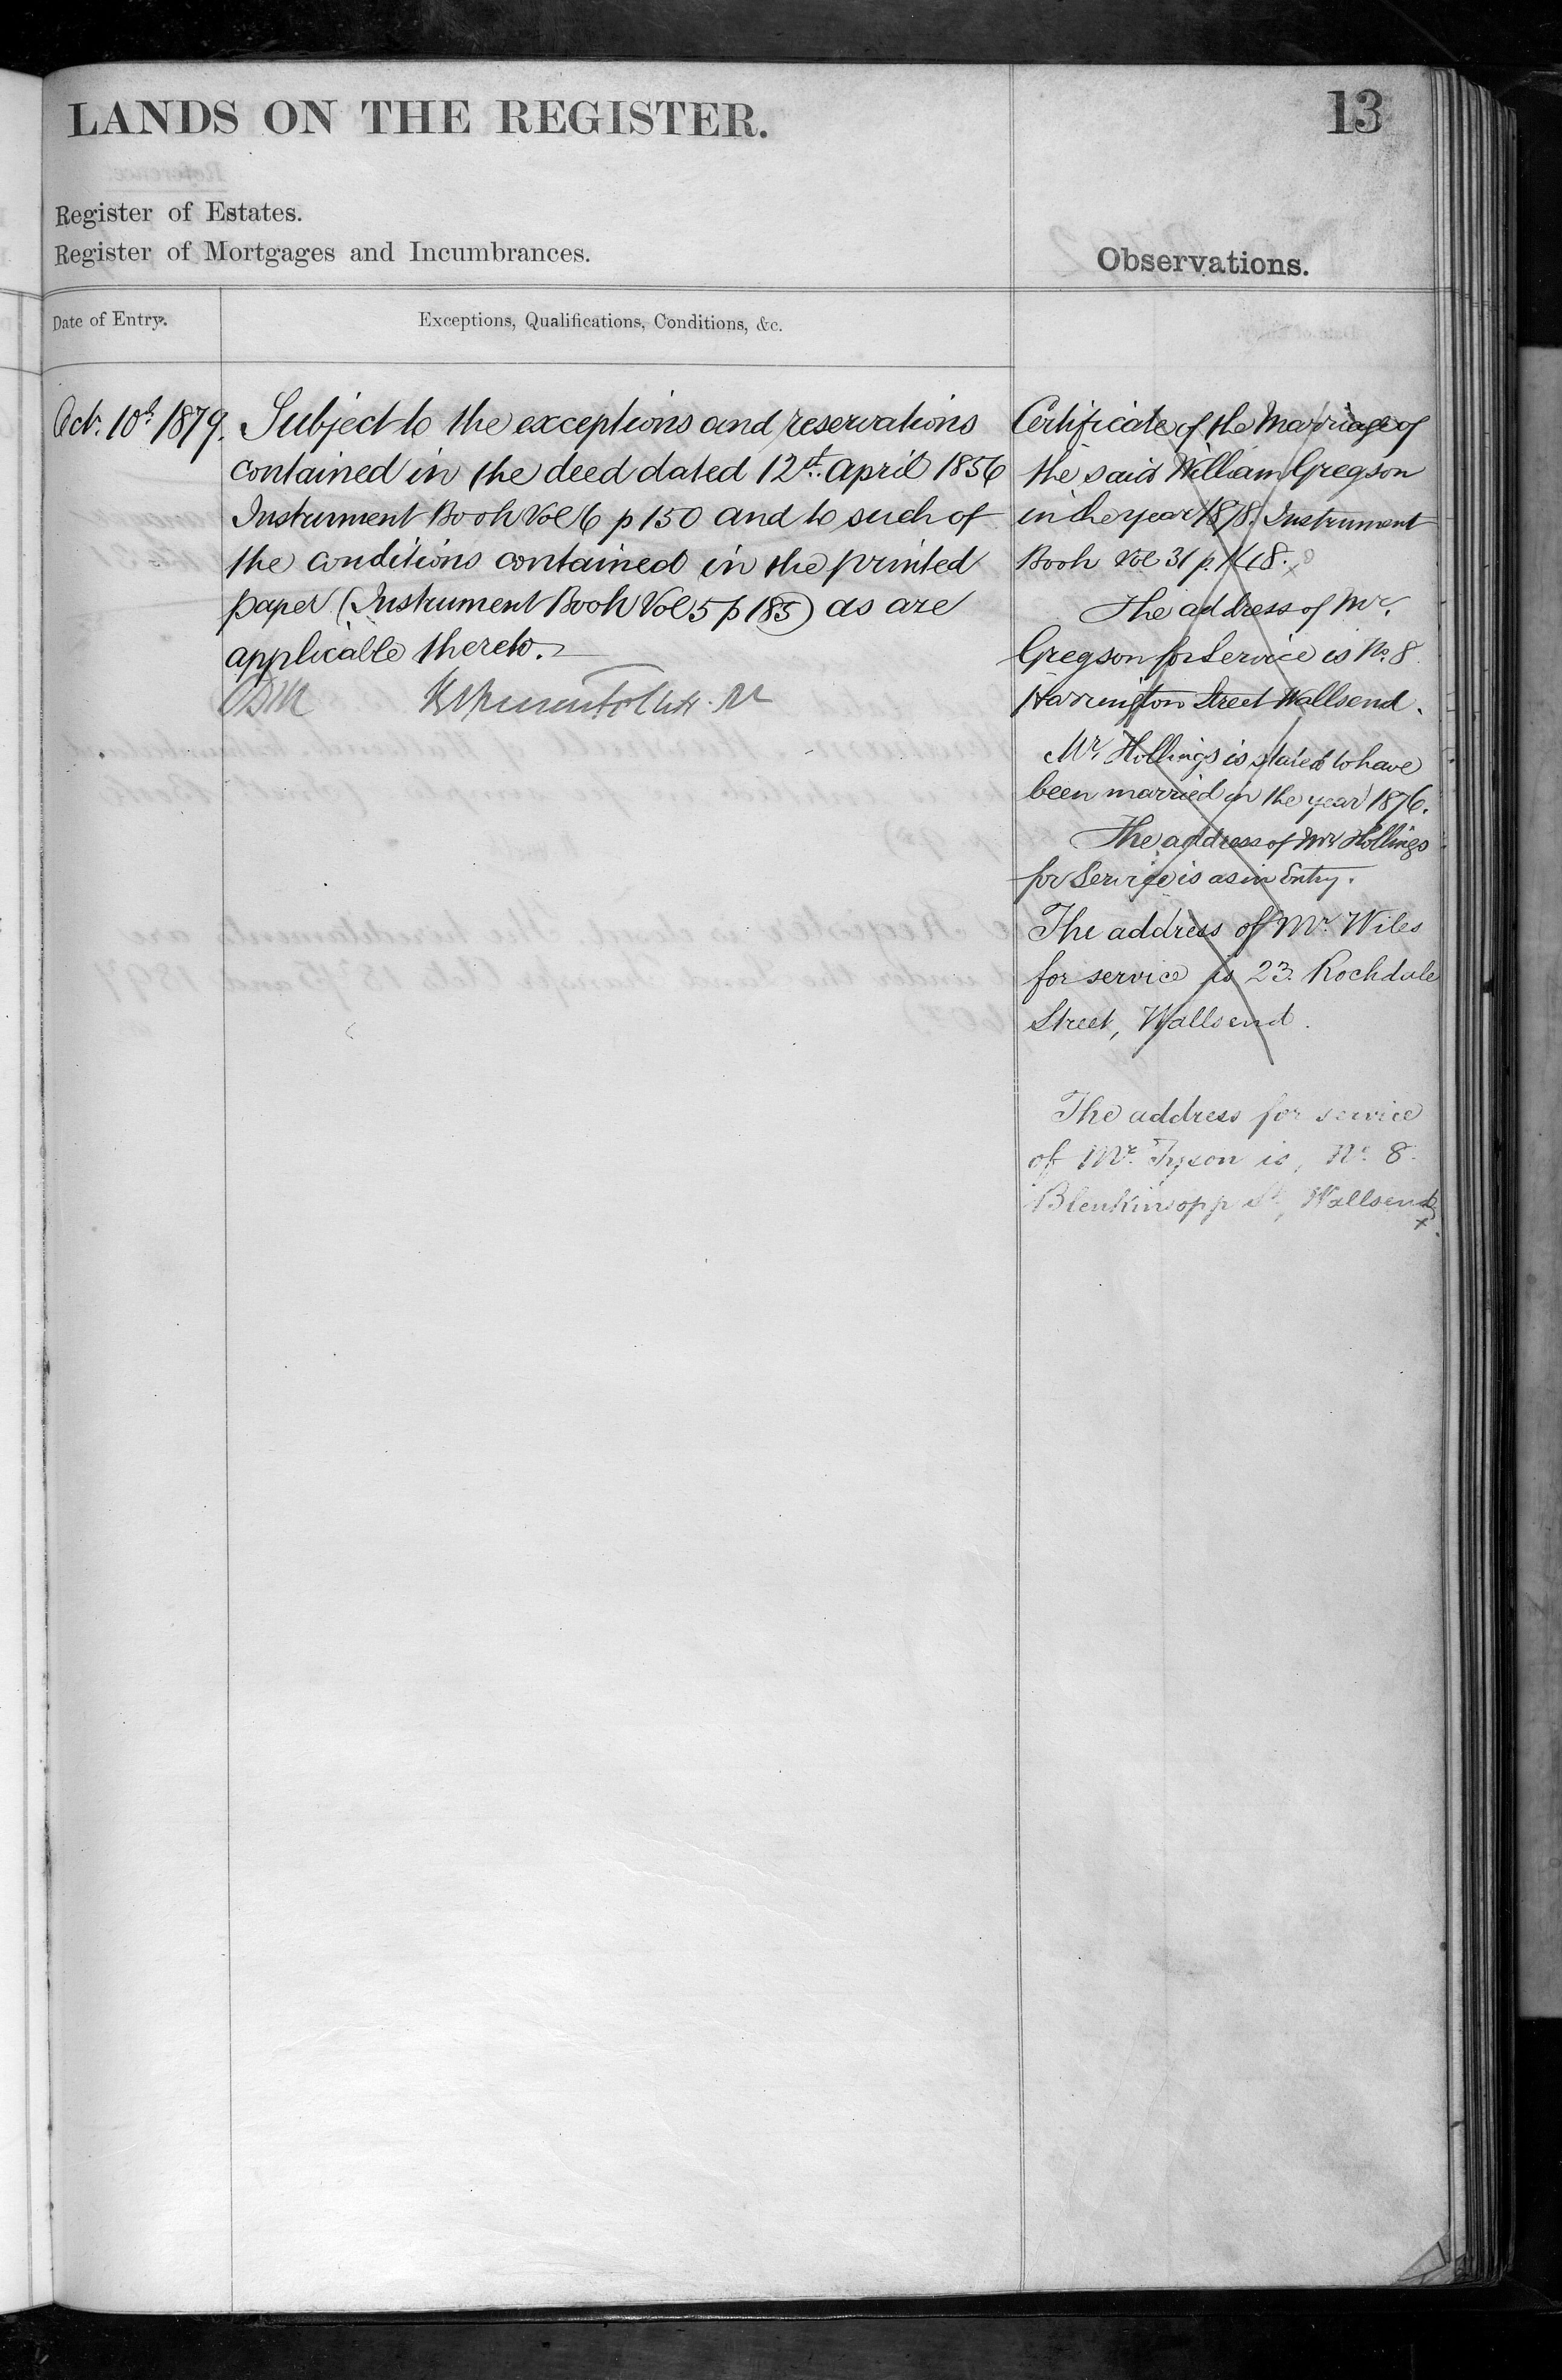 LANDS ON THE REGISTER.
13
Register of Estates.
Register of Mortgages and Incumbrances.
Observations.
Date of Entry.
Exceptions, Qualifications, Conditions, &c.
Oct. 10th 1879.
Subject to the exceptions and reservations
contained in the deed dated 12th April 1856
Instrument Book Vol 6 p 150 and to such of
the conditions contained in the printed
paper (Instrument Book Vol 5 p 185) as are
applicable thereto.
Certificate of the Marriage of
the said William Gregson
in the year 1878. Instrument
Book Vol 31 p. 148.
The address of Mr.
Gregson for Service is No. 8
Harrington Street Wallsend.
Mr. Hollings is stated to have
been married in the year 1876.
The address of Mr Hollings
for Service is as in Entry.
The address of Mr. Wiles
for service is 23. Rochdale
Street, Wallsend.
The address for service
of Mr. Tyson is, No. 8.
Blenkinsopp St, Wallsend